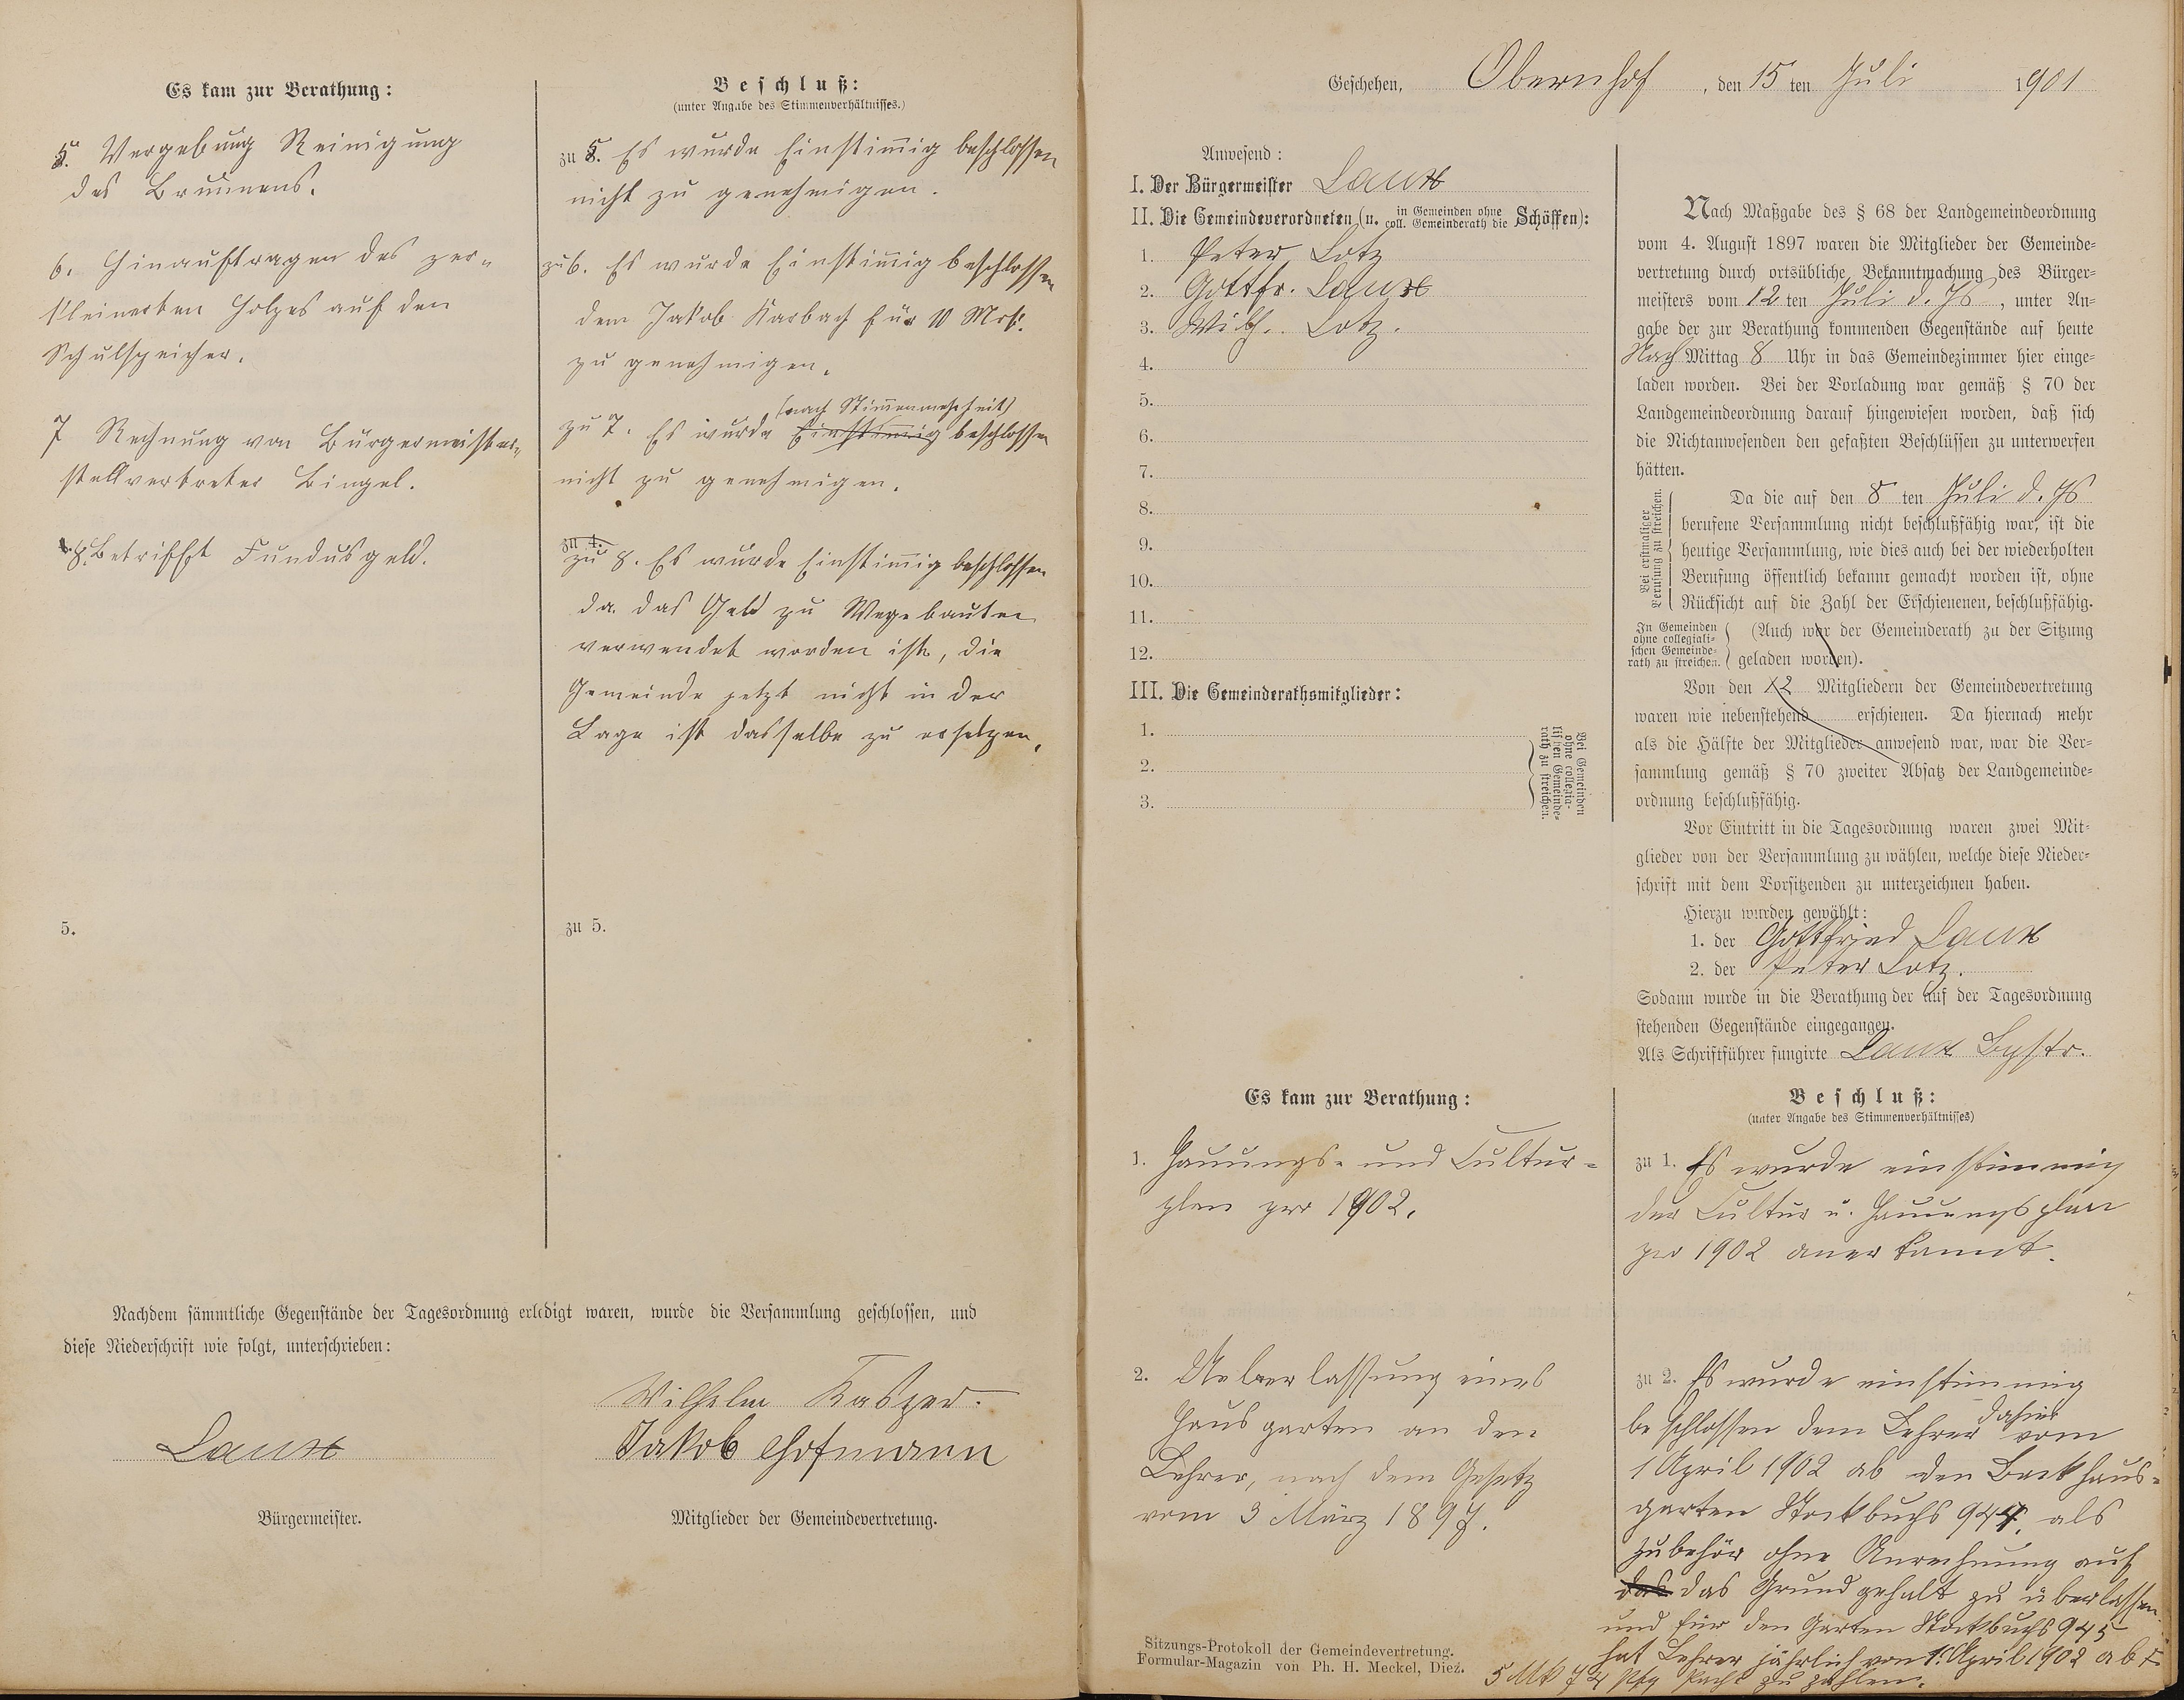 Es kam zur Berathung:
5. Vergebung Reinigung
des Brunnens.
6. Hinauftragen des zer-
kleinerten Holzes auf den
Schulspeicher.
7 Rechnung von Bürgermeister-
stellvertreter Bingel.
8. Betrifft Fundusgeld.
5.
Beschluß:
(unter Angabe des Stimmenverhältnisses.)
zu 5. Es wurde Einstimig beschlossen
nicht zu genehmigen.
zu 6. Es wurde Einstimig beschlossen
dem Jakob Karbach für 10 Mrk.
zu genehmigen.
(nach Stimenmehrheit)
zu 7. Es wurde Einstimig beschlossen
nicht zu genehmigen.
zu 4.
zu 8. Es wurde Einstimig beschlossen
da das Geld zu Wegebauten
verwendet worden ist, die
Gemeinde jetzt nicht in der
Lage ist dasselbe zu ersetzen.
zu 5.
Nachdem sämmtliche Gegenstände der Tagesordnung erledigt waren, wurde die Versammlung geschlossen, und
diese Niederschrift wie folgt, unterschrieben:
Laux
Bürgermeister.
Wilhelm Kasper.
Jakob Hofmann
Mitglieder der Gemeindevertretung.
Geschehen, Obernhof, den 15 ten Juli 1901
Anwesend:
I. Der Bürgermeister Laux
II. Die Gemeindeverordneten (u. in Gemeinden ohne coll. Gemeinderath die Schöffen):
1. Peter Lotz
2. Gottfr. Laux
3. Wilh. Lotz.
4.
5.
6.
7.
8.
9.
10.
11.
12.
III. Die Gemeinderathsmitglieder:
1.
2.
3.
Bei Gemeinden
ohne collegia-
lischen Gemeinde-
rath zu streichen.
Nach Maßgabe des § 68 der Landgemeindeordnung
vom 4. August 1897 waren die Mitglieder der Gemeinde-
vertretung durch ortsübliche Bekanntmachung des Bürger-
meisters vom 12 ten Juli d. Js, unter An-
gabe der zur Berathung kommenden Gegenstände auf heute
Nach Mittag 8 Uhr in das Gemeindezimmer hier einge-
laden worden. Bei der Vorladung war gemäß § 70 der
Landgemeindeordnung darauf hingewiesen worden, daß sich
die Nichtanwesenden den gefaßten Beschlüssen zu unterwerfen
hätten.
Bei erstmaliger
Berufung zu streichen.
Da die auf den 8 ten Juli d. Js
berufene Versammlung nicht beschlußfähig war, ist die
heutige Versammlung, wie dies auch bei der wiederholten
Berufung öffentlich bekannt gemacht worden ist, ohne
Rücksicht auf die Zahl der Erschienenen, beschlußfähig.
In Gemeinden
ohne collegiali-
schen Gemeinde-
rath zu streichen.
(Auch war der Gemeinderath zu der Sitzung
geladen worden).
Von den 12 Mitgliedern der Gemeindevertretung
waren wie nebenstehend erschienen. Da hiernach mehr
als die Hälfte der Mitglieder anwesend war, war die Ver-
sammlung gemäß § 70 zweiter Absatz der Landgemeinde-
ordnung beschlußfähig.
Vor Eintritt in die Tagesordnung waren zwei Mit-
glieder von der Versammlung zu wählen, welche diese Nieder-
schrift mit dem Vorsitzenden zu unterzeichnen haben.
Hierzu wurden gewählt:
1. der Gottfried Laux
2. der Peter Lotz.
Sodann wurde in die Berathung der auf der Tagesordnung
stehenden Gegenstände eingegangen.
Als Schriftführer fungirte Laux Bgstr.
Es kam zur Berathung:
1. Hauungs- und Cultur-
plan pro 1902.
2. Ueberlassung eines
Hausgarten an den
Lehrer, nach dem Gesetz
vom 3 März 1897.
Beschluß:
(unter Angabe des Stimmenverhältnisses)
zu 1. Es wurde einstimmig
der Cultur u. Hauungsplan
pro 1902 anerkannt.
zu 2. Es wurde einstimmig
beschlossen dem Lehrer dahier vom
1 April 1902 ab den Backhaus-
garten Stockbuchs 944, als
Zubehör ohne Anrechnung auf
das das Grundgehalt zu überlassen.
und für den Garten Stockbuchs 945
hat Lehrer jährlich vom 1. April 1902 ab
5 Mk 74 Pfg Pacht zu zahlen.
Sitzungs-Protokoll der Gemeindevertretung.
Formular-Magazin von Ph. H. Meckel, Diez.